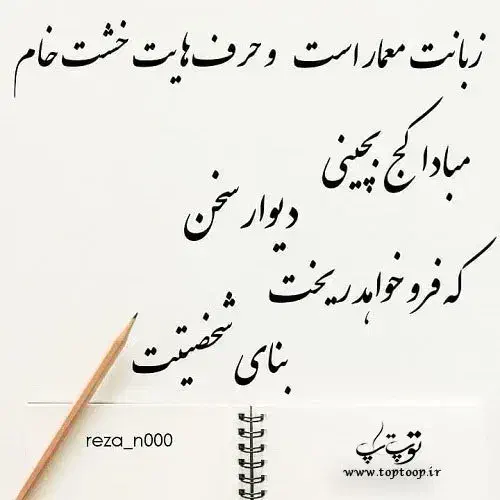 زبانت معمار است و حرف‌هایت خشت خام
مبادا کج بچینی
دیوار سخن
که فرو خواهد ریخت
بنای شخصیتت
reza_n000
توپ تاپ
www.toptoop.ir